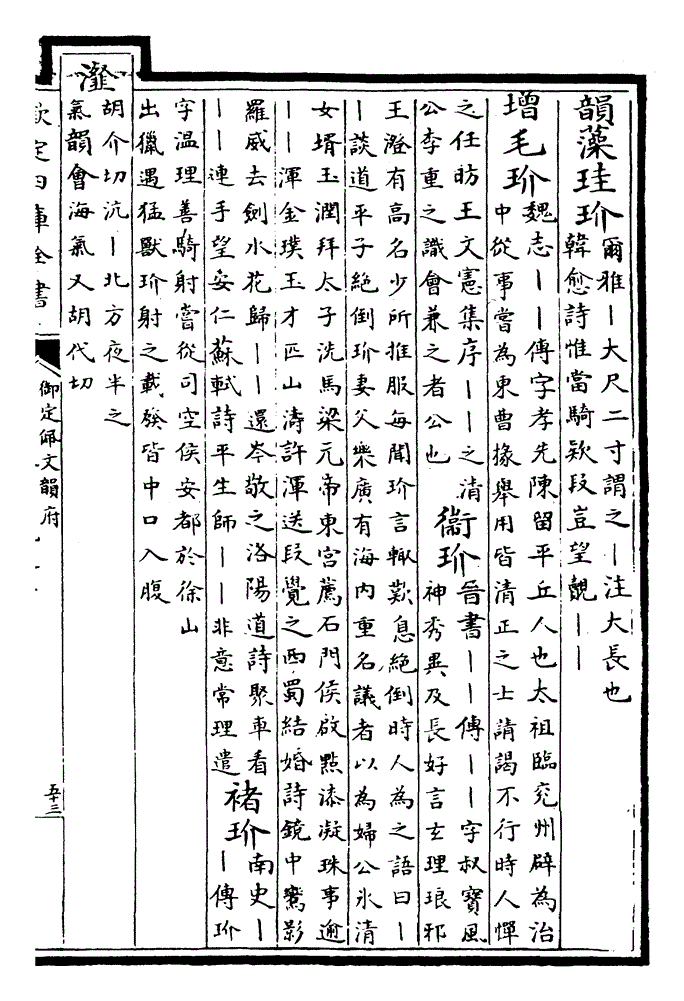 韻藻珪玠
爾雅丨大尺二寸謂之丨注大長也
韓愈詩惟當騎欵段豈望覿丨丨
增毛玠
魏志丨丨傳字孝先陳留平丘人也太祖臨兖州辟為治
中從事嘗為東曹掾舉用皆清正之士請謁不行時人憚
之任昉王文憲集序丨丨之清
公李重之識會兼之者公也
衞玠
晉書丨丨傳丨丨字叔寶風
神秀異及長好言玄理琅邪
王澄有高名少所推服每聞玠言輒歎息絕倒時人為之語曰丨
丨談道平子絕倒玠妻父樂廣有海内重名議者以為婦公氷清
女壻玉潤拜太子洗馬梁元帝東宮薦石門侯啟點漆凝珠事逾
丨丨渾金璞玉才匹山濤許渾送段覺之西蜀結婚詩鏡中鸞影
羅威去劍水花歸丨丨還岑敬之洛陽道詩聚車看
丨丨連手望安仁蘇軾詩平生師丨丨非意常理遣
褚玠
南史丨
丨傳玠
字溫理善騎射嘗從司空侯安都於徐山
出獵遇猛獸玠射之載發皆中口入腹
瀣
胡介切沆丨北方夜半之
氣韻會海氣又胡代切
欽定四庫全書
御定佩文韻府
五十三